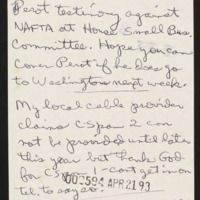 Perot testimony against
NAFTA at House Small Bus.
Committee. Hope you can
cover Perot if he does go
to Washington next week.
My local cable provider
claims CSpan 2 can
not be provided until later
this year but thank God
for CS 1 - can't get in on
tel. to say so.
000594 APR 21 93